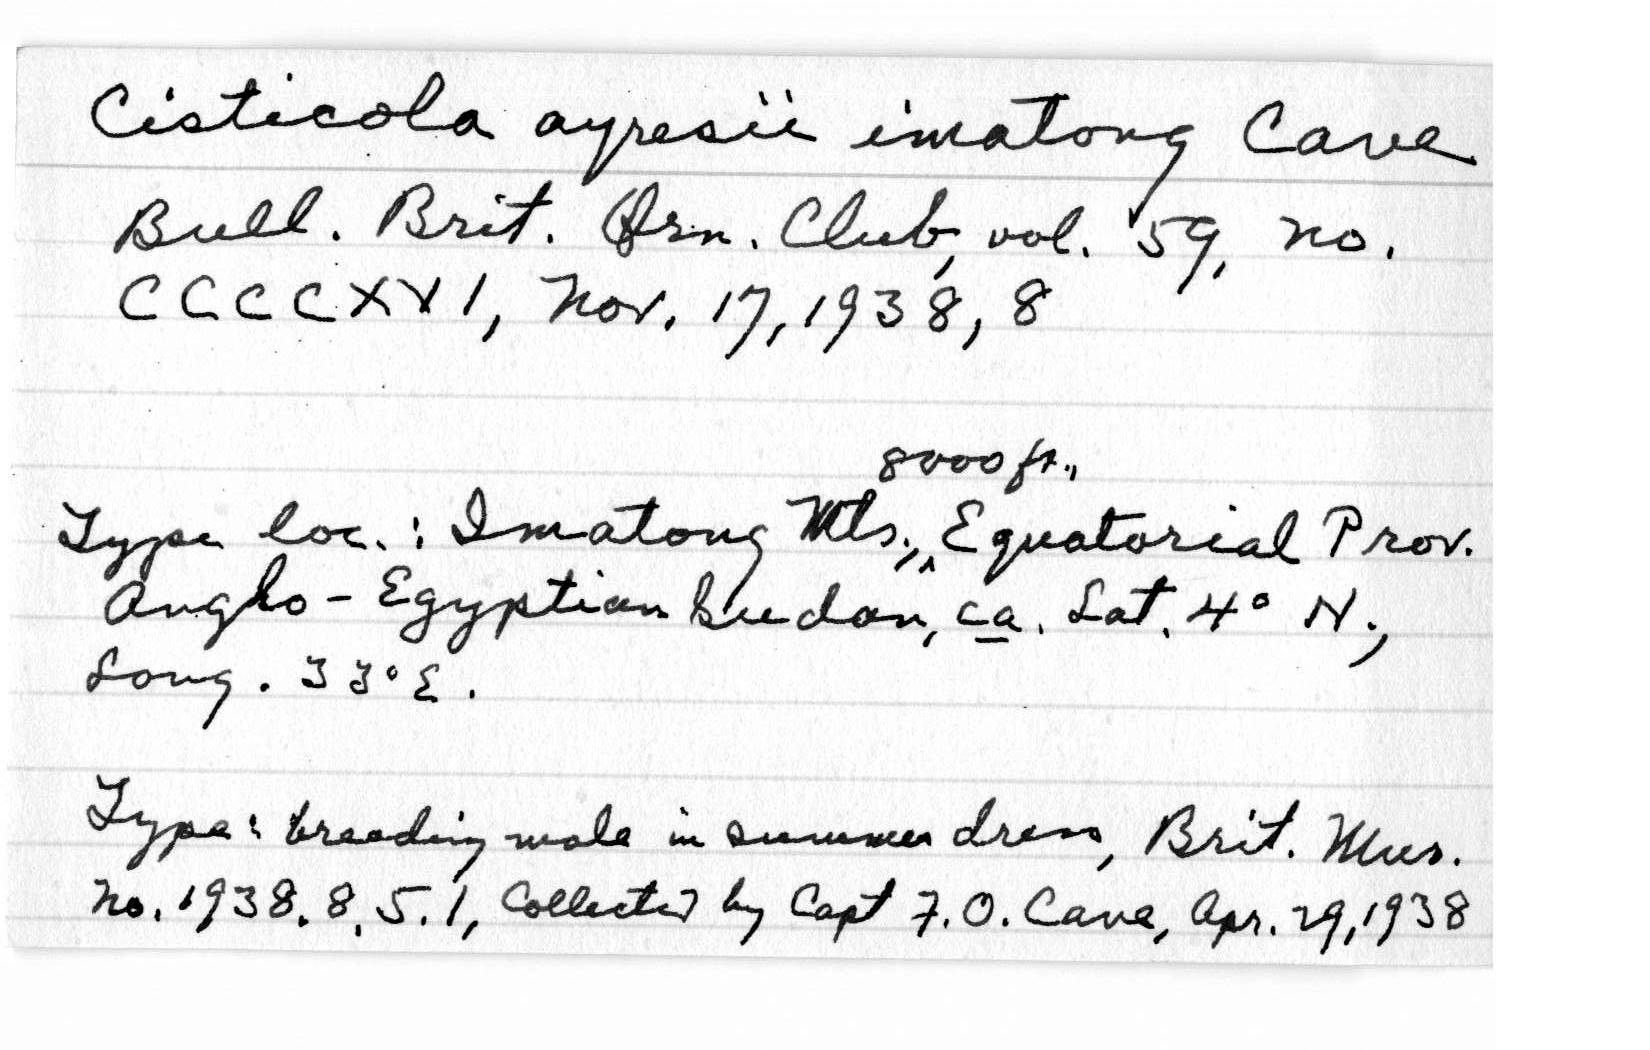 Cisticola ayresii imatong Cave
Bull. Brit. Orn. Club, vol. 59, no.
CCCCXVI, Nov. 17, 1938, 8
8000 ft.,
Type loc.: Imatong Mts., ^ Equatorial Prov.
Anglo-Egyptian Sudan, ca. Lat. 4° N.,
Long. 33° E.
Type: breeding male in summer dress, Brit. Mus.
No. 1938.8.5.1, Collected by Capt F. O. Cave, Apr. 29, 1938